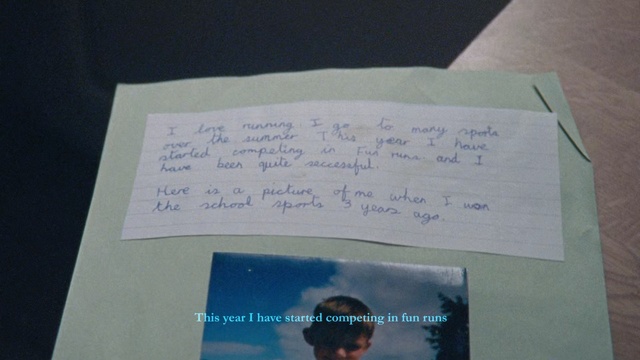 I love running. I go to many sports
over the summer This year I have
started competing in Fun runs and I
have been quite seccesful.
Here is a picture of me when I won
the school sports 3 years ago.
This year I have started competing in fun runs